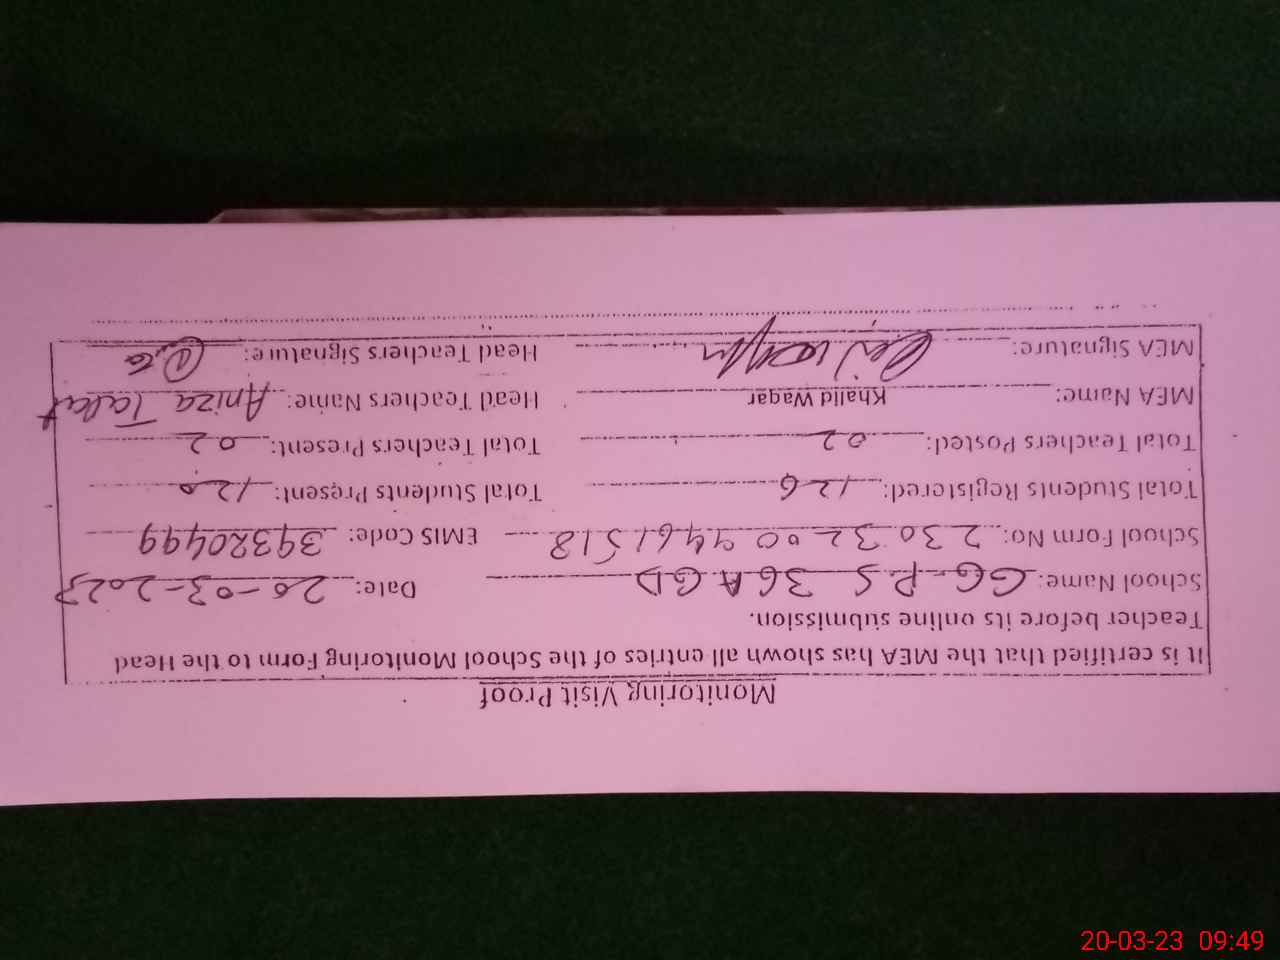 Monitoring Visit Proof
It is certified that the MEA has shown all entries of the School Monitoring Form to the Head
Teacher before its online submission.
School Name: GG PS 36 A GD Date: 20-03-2023
School Form No: 23032009461518 EMIS Code: 39320499
Total Students Registered: 126 Total Students Present: 120
Total Teachers Posted: 02 Total Teachers Present: 02
MEA Name: Khalid Waqar Head Teachers Name: Aniza Talat
MEA Signature: Head Teachers Signature:
20-03-23 09:49